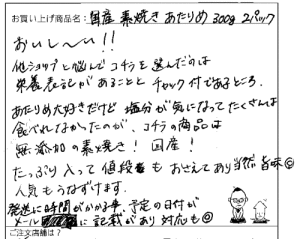 お買い上げ商品名: 国産 素焼き あたりめ 300g 2パック
おいし〜い!!
他ショップと悩んでコチラを選んだのは
栄養表記があることと チャック付であるところ.
あたりめ大好きだけど 塩分が気になってたくさんは
食べれなかったのが、コチラの商品は
無添加の素焼き! 国産!
たっぷり入って値段も おさえてあり当然 旨味◎
人気もうなずけます.
発送に時間がかかる事、予定の日付が
メール に記載があり 対応も◎
ご注文店舗は?